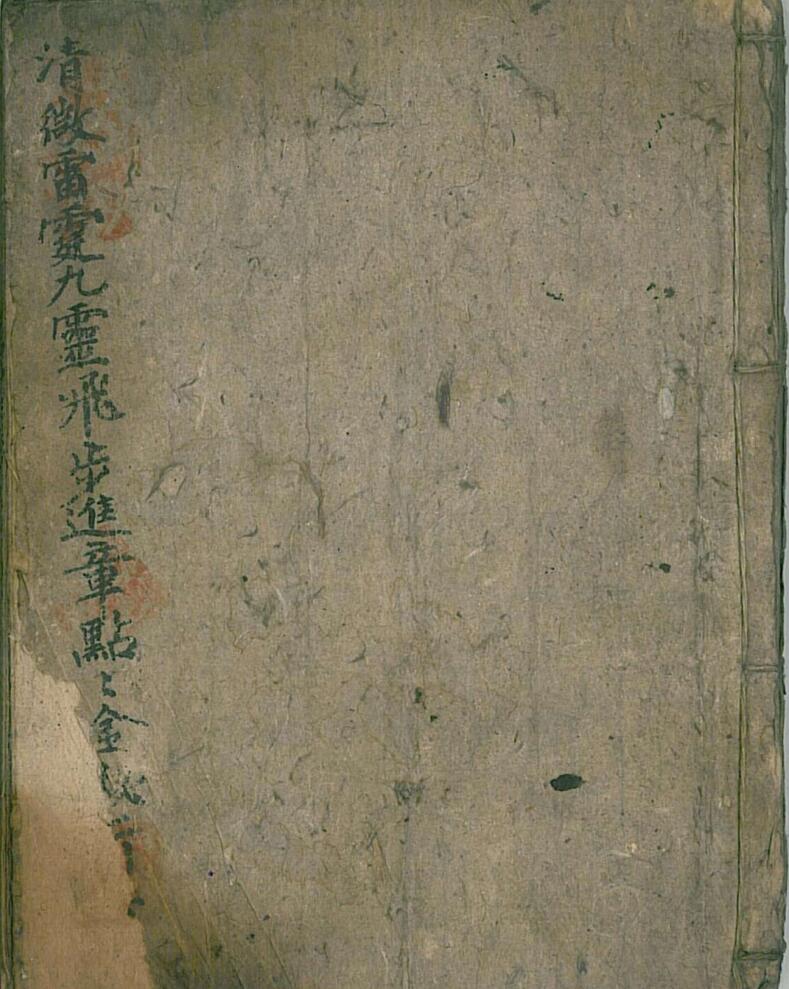 清微雷霆九靈飛步進章點〻金